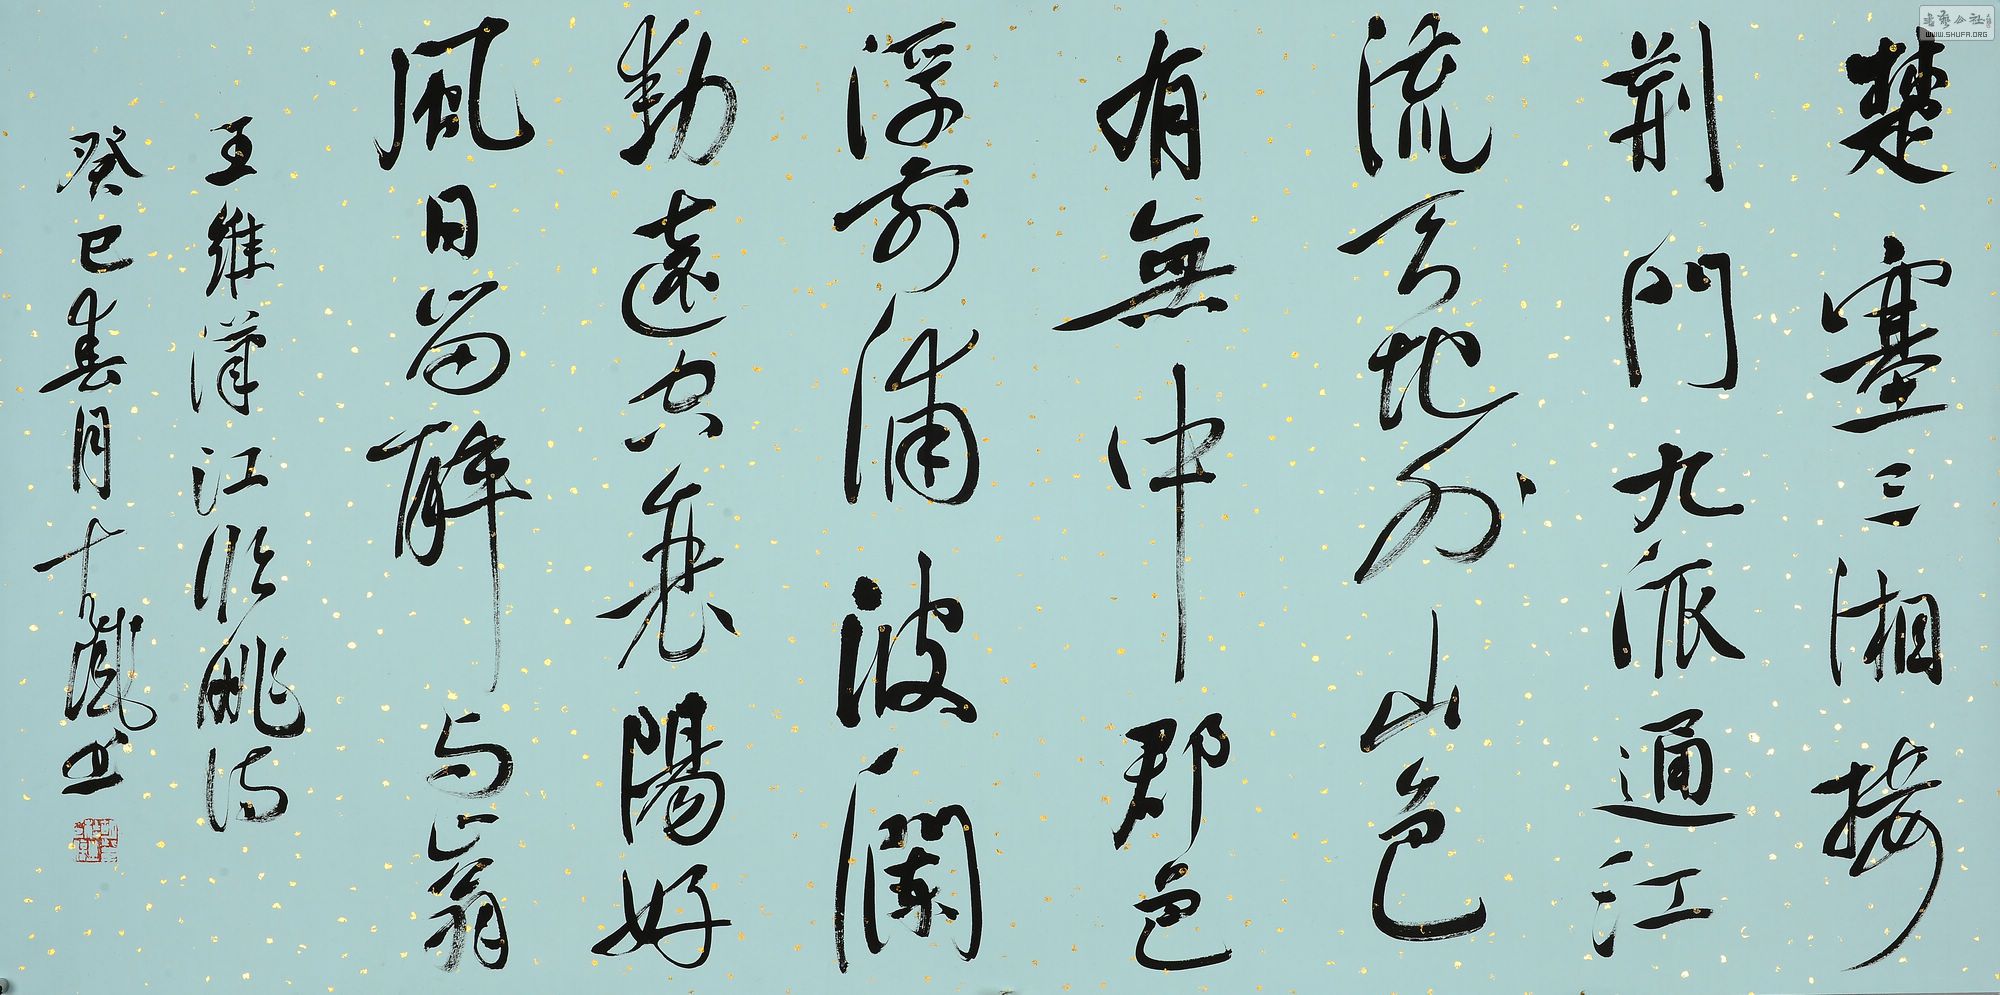 楚塞三湘接
荆門九派通江
流天地外山色
有無中郡邑
浮前浦波瀾
動遠空襄陽好
風日留醉与山翁
王維漢江臨眺詩
癸巳春月书
书艺公社
WWW.SHUFA.ORG